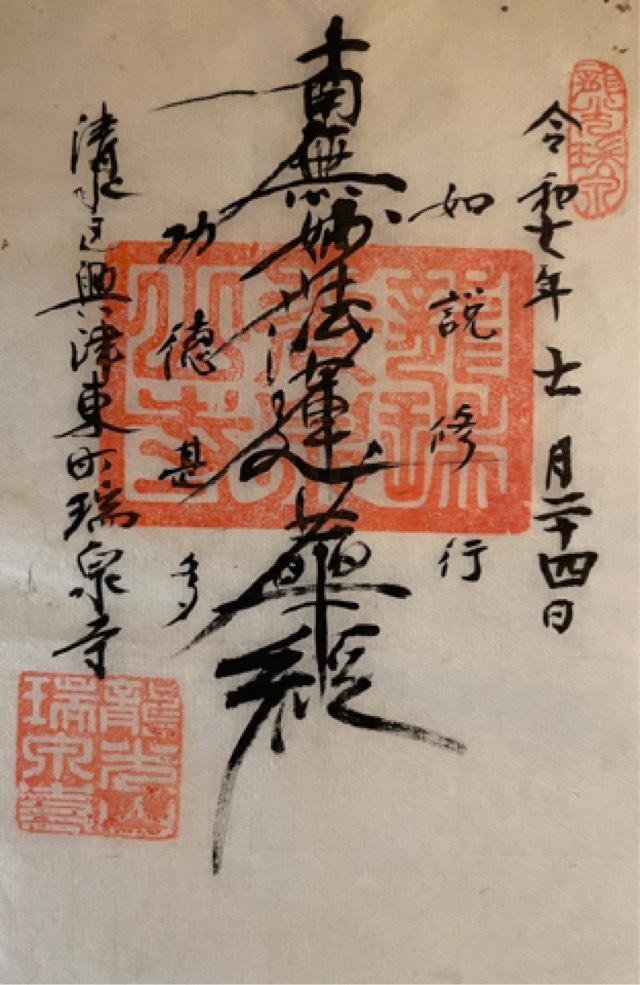 令和七年十一月二十四日
如説修行
南無妙法蓮華経
功徳甚多
清水区興津東町瑞泉寺
龍光山
瑞泉寺